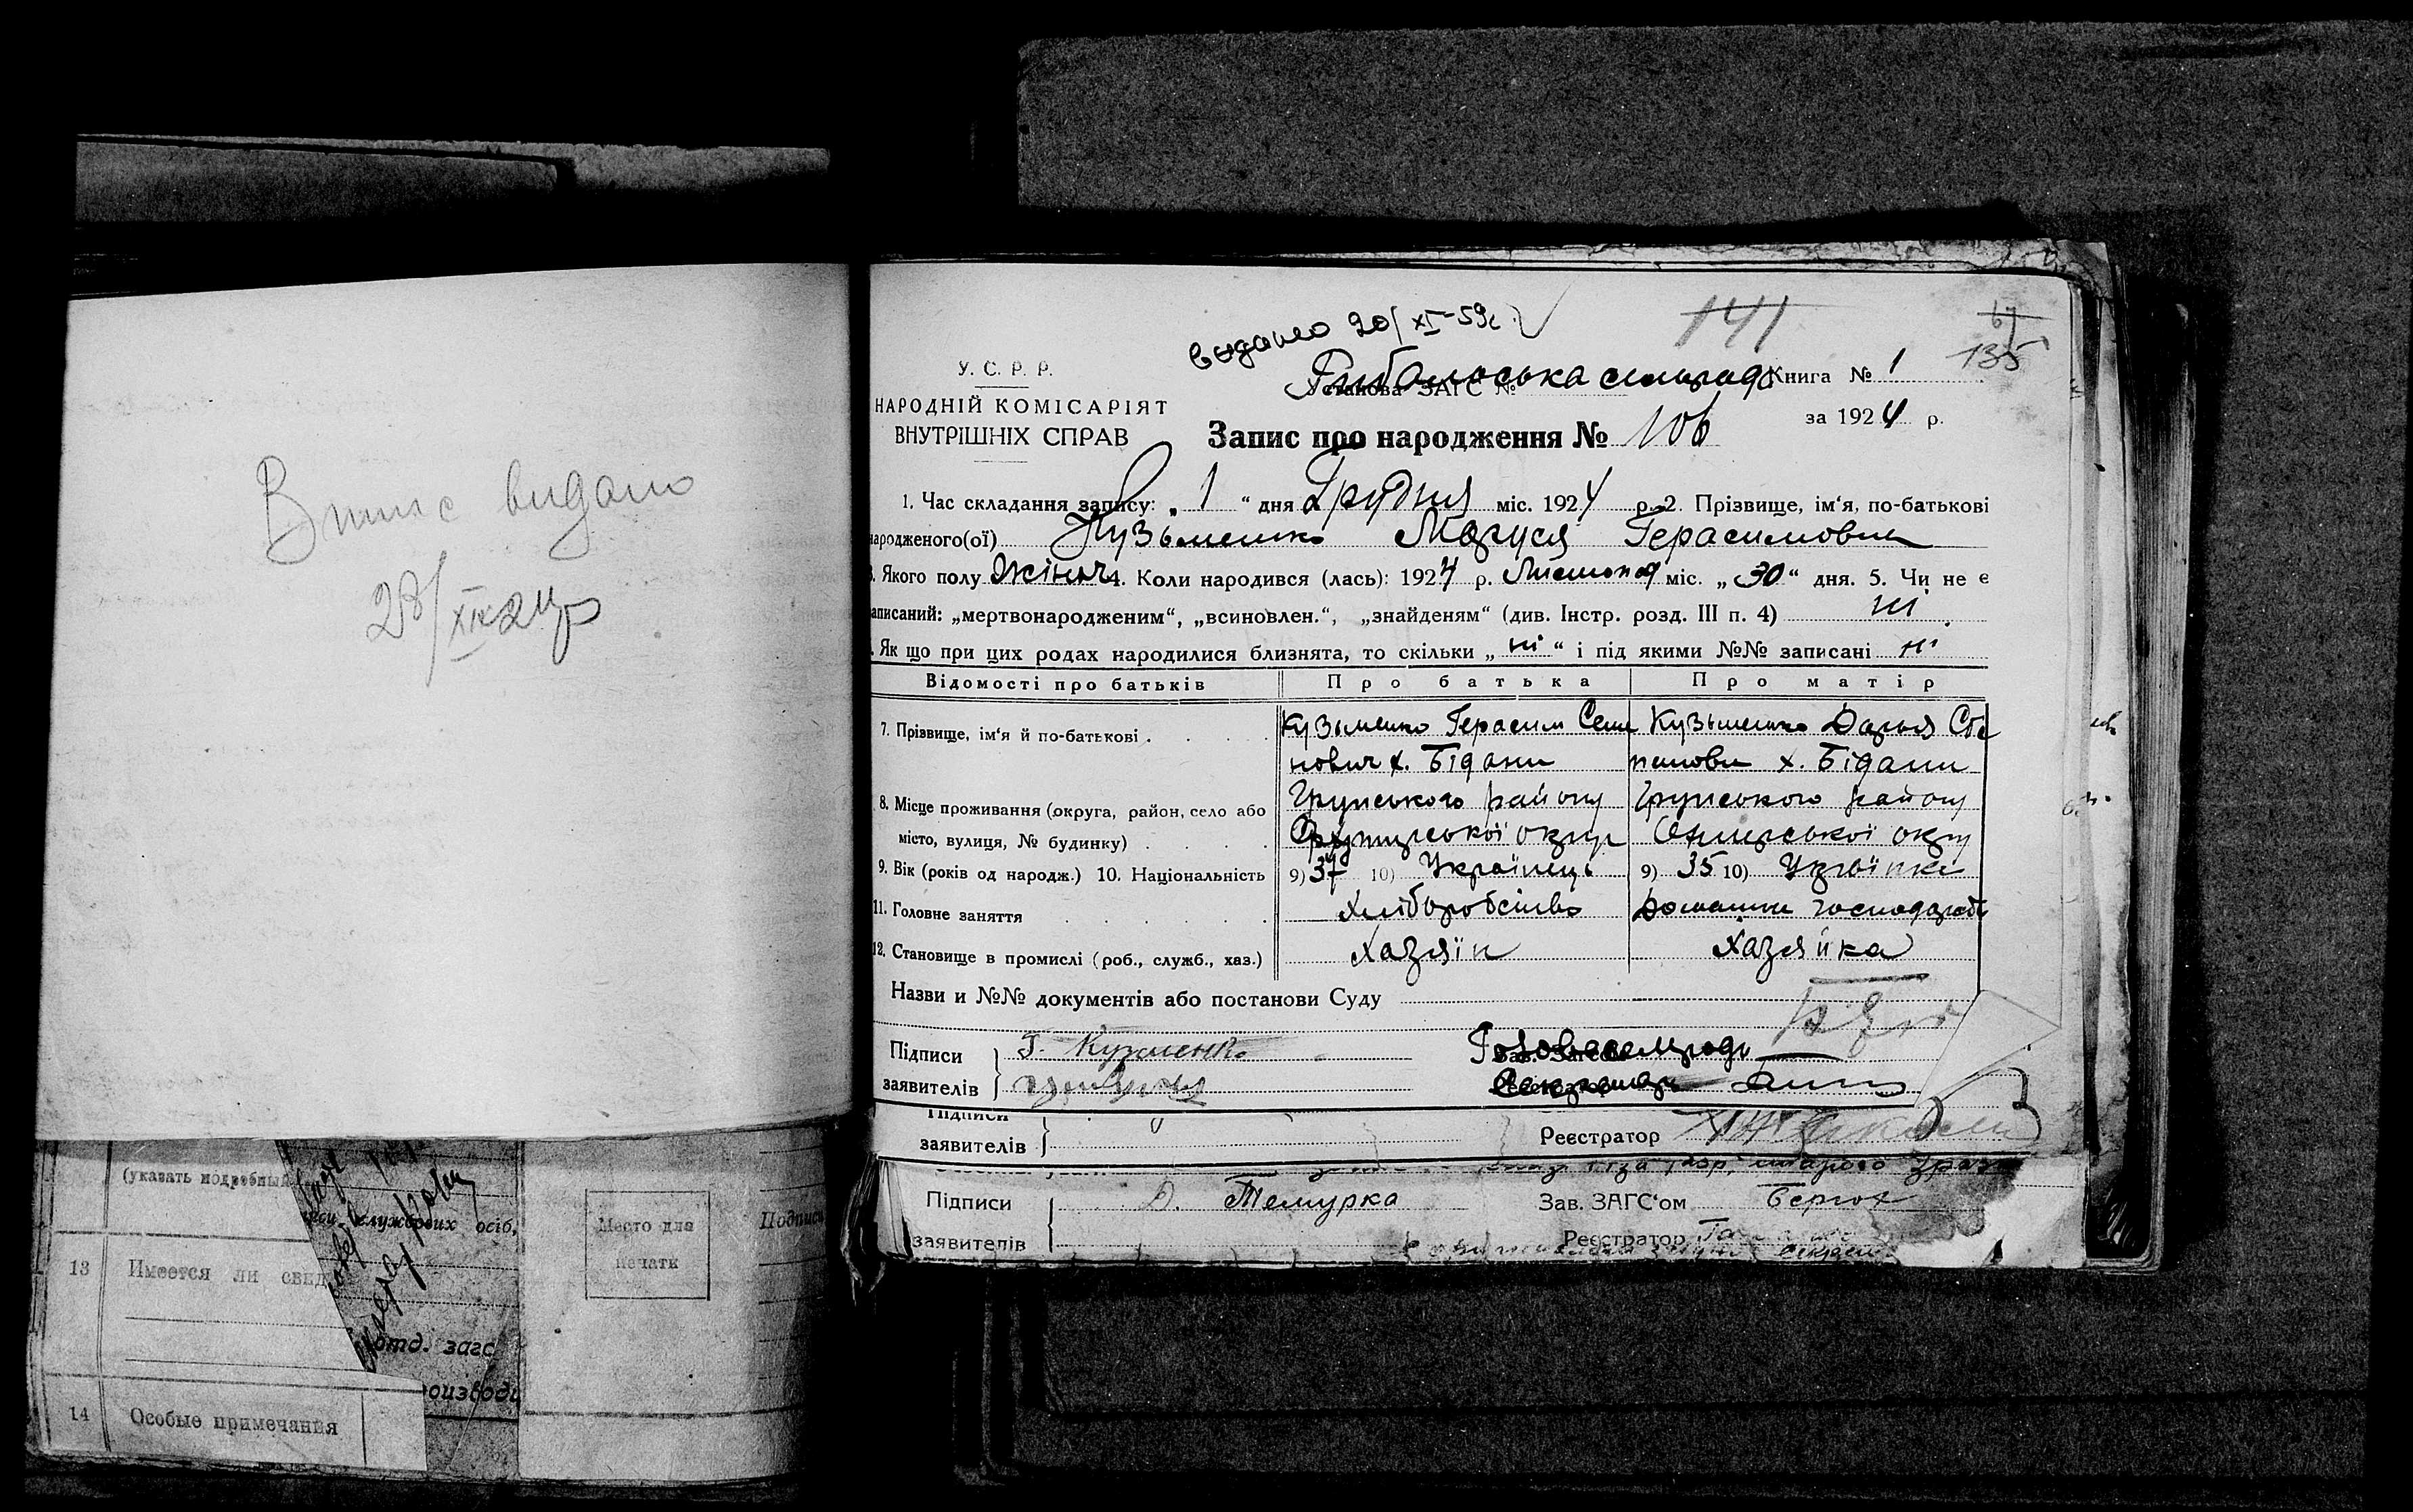 Випис видано
28/XII 24 р
(указать подробный
службових осіб,
13 Имеется ли свид
отд. загс
14 Особые примечания
Место для
печати
Подпись
видано 20/XI-59г.
141
67
135
У. С. Р. Р.
НАРОДНІЙ КОМІСАРІЯТ
ВНУТРІШНІХ СПРАВ
Рибальська сільрада
Установа ЗАГС №
Книга № 1
за 1924 р.
Запис про народження № 106
1. Час складання запису: „ 1 “ дня Грудня міс. 1924 р. 2. Прізвище, ім‘я, по-батькові
народженого(ої) Кузьменко Маруся Герасимовна
3. Якого полу Жіноч 4. Коли народився (лась): 1924 р. Листопад міс. „ 30 “ дня. 5. Чи не є
записаний: „мертвонародженим“, „всиновлен.“, „знайденям“ (див. Інстр. розд. III п. 4) ні
Як що при цих родах народилися близнята, то скільки „ ні “ і під якими №№ записані ні
Відомості про батьків Про батька Про матір
7. Прізвище, ім‘я й по-батькові . Кузьменко Герасим Семе Кузьменко Дарья Сте
нович х. Бідани пановн х. Бідани
8. Місце проживання (округа, район, село або Грунського району Грунського району
місто, вулиця, № будинку) . округ округ
9. Вік (років од народж.) 10. Національність 9) 37 10) Українець 9) 35 10) Українка
11. Головне заняття Хліборобство Домашн господарст
12. Становище в промислі (роб., служб., хаз.) Хазяїн Хазяйка
Назви и №№ документів або постанови Суду
Підписи Г. Кузменко Голова сільради
заявителів Секретарь
Підписи
заявителів Реєстратор
Підписи Д. Темурка Зав. ЗАГС‘ом
заявителів Реєстратор